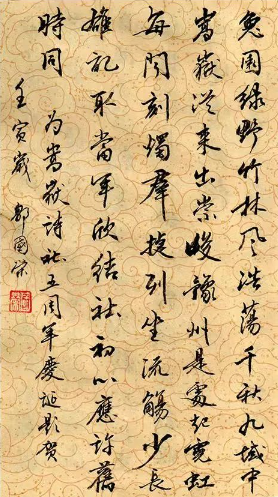 兔園綠野竹林風浩蕩千秋九域中
嵩嶽從來出崇峻豫州是處起霓虹
每聞刻燭羣列坐流觴少長
雄記取當年欣結社初心應許舊
時同
為嵩嶽詩社五周年慶誕題賀
壬寅歲郭國榮